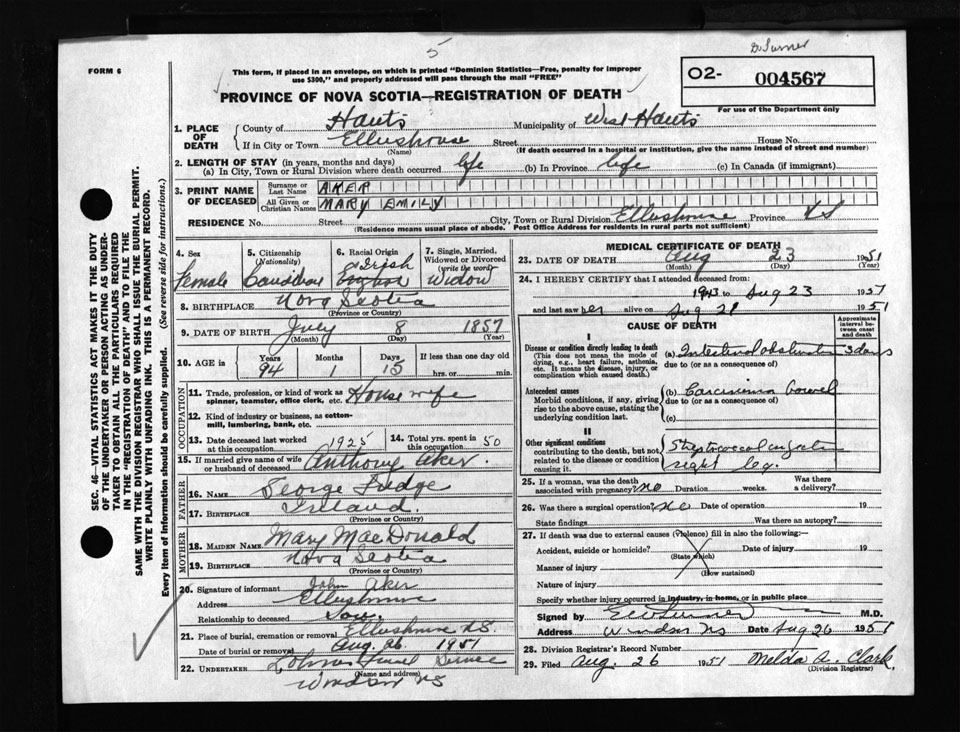 5
FORM 6
This form, if placed in an envelope, on which is printed "Dominion Statistics—Free, penalty for improper
use $300," and properly addressed will pass through the mail "FREE"
PROVINCE OF NOVA SCOTIA—REGISTRATION OF DEATH
O2- 004567
For use of the Department only
1. PLACE OF DEATH
County of Hants Municipality of West Hants
If in City or Town Ellershouse Street House No.
(Name) (If death occurred in a hospital or institution, give the name instead of street and number)
2. LENGTH OF STAY (in years, months and days)
(a) In City, Town or Rural Division where death occurred life (b) In Province life (c) In Canada (if immigrant)
3. PRINT NAME OF DECEASED
Surname or Last Name AKER
All Given or Christian Names MARY EMILY
RESIDENCE No. Street City, Town or Rural Division Ellershouse Province NS
(Residence means usual place of abode. Post Office Address for residents in rural parts not sufficient)
4. Sex Female
5. Citizenship (Nationality) Canadian
6. Racial Origin Irish
7. Single, Married, Widowed or Divorced (write the word) Widow
8. BIRTHPLACE Nova Scotia
(Province or Country)
9. DATE OF BIRTH July 8 1857
(Month) (Day) (Year)
10. AGE in Years 94 Months 1 Days 15 If less than one day old hrs. or min.
OCCUPATION
11. Trade, profession, or kind of work as spinner, teamster, office clerk, etc. House wife
12. Kind of industry or business, as cotton-mill, lumbering, bank, etc.
13. Date deceased last worked at this occupation 1925
14. Total yrs. spent in this occupation 50
15. If married give name of wife or husband of deceased Anthony Aker.
FATHER
16. NAME George Fudge
17. BIRTHPLACE Ireland.
(Province or Country)
MOTHER
18. MAIDEN NAME Mary MacDonald
19. BIRTHPLACE Nova Scotia
(Province or Country)
20. Signature of informant John Aker
Address Ellershouse
Relationship to deceased Son.
21. Place of burial, cremation or removal Ellershouse NS.
Aug. 26. 1951
22. UNDERTAKER
(Name and address)
Windsor NS
MEDICAL CERTIFICATE OF DEATH
23. DATE OF DEATH Aug 23 1951
(Month) (Day) (Year)
24. I HEREBY CERTIFY that I attended deceased from:
Aug 23 1951
and last saw her alive on Aug 21 1951
CAUSE OF DEATH
Approximate interval between onset and death
I
Disease or condition directly leading to death
(This does not mean the mode of dying, e.g., heart failure, asthenia, etc. It means the disease, injury, or complication which caused death.)
(a) Intestinal obstruction 3 days
due to (or as a consequence of)
Antecedent causes
Morbid conditions, if any, giving rise to the above cause, stating the underlying condition last.
(b) Carcinoma bowel
due to (or as a consequence of)
(c)
II
Other significant conditions
contributing to the death, but not related to the disease or condition causing it.
Streptococcal infection
right leg.
25. If a woman, was the death associated with pregnancy? no Duration weeks. Was there a delivery?
26. Was there a surgical operation? no Date of operation 19
State findings Was there an autopsy?
27. If death was due to external causes (Violence) fill in also the following:
Accident, suicide or homicide? Date of injury 19
(State which)
Manner of injury
(How sustained)
Nature of injury
Specify whether injury occurred in industry, in home, or in public place
Signed by M.D.
Address Windsor NS Date Aug 26 1951
28. Division Registrar's Record Number
29. Filed Aug. 26 1951 Melda A. Clark
(Division Registrar)
SEC. 46—VITAL STATISTICS ACT MAKES IT THE DUTY
OF THE UNDERTAKER OR PERSON ACTING AS UNDER-
TAKER TO OBTAIN ALL THE PARTICULARS REQUIRED
IN THE "REGISTRATION OF DEATH" AND TO FILE THE
SAME WITH THE DIVISION REGISTRAR WHO SHALL ISSUE THE BURIAL PERMIT.
WRITE PLAINLY WITH UNFADING INK. THIS IS A PERMANENT RECORD.
Every item of Information should be carefully supplied. (See reverse side for instructions.)